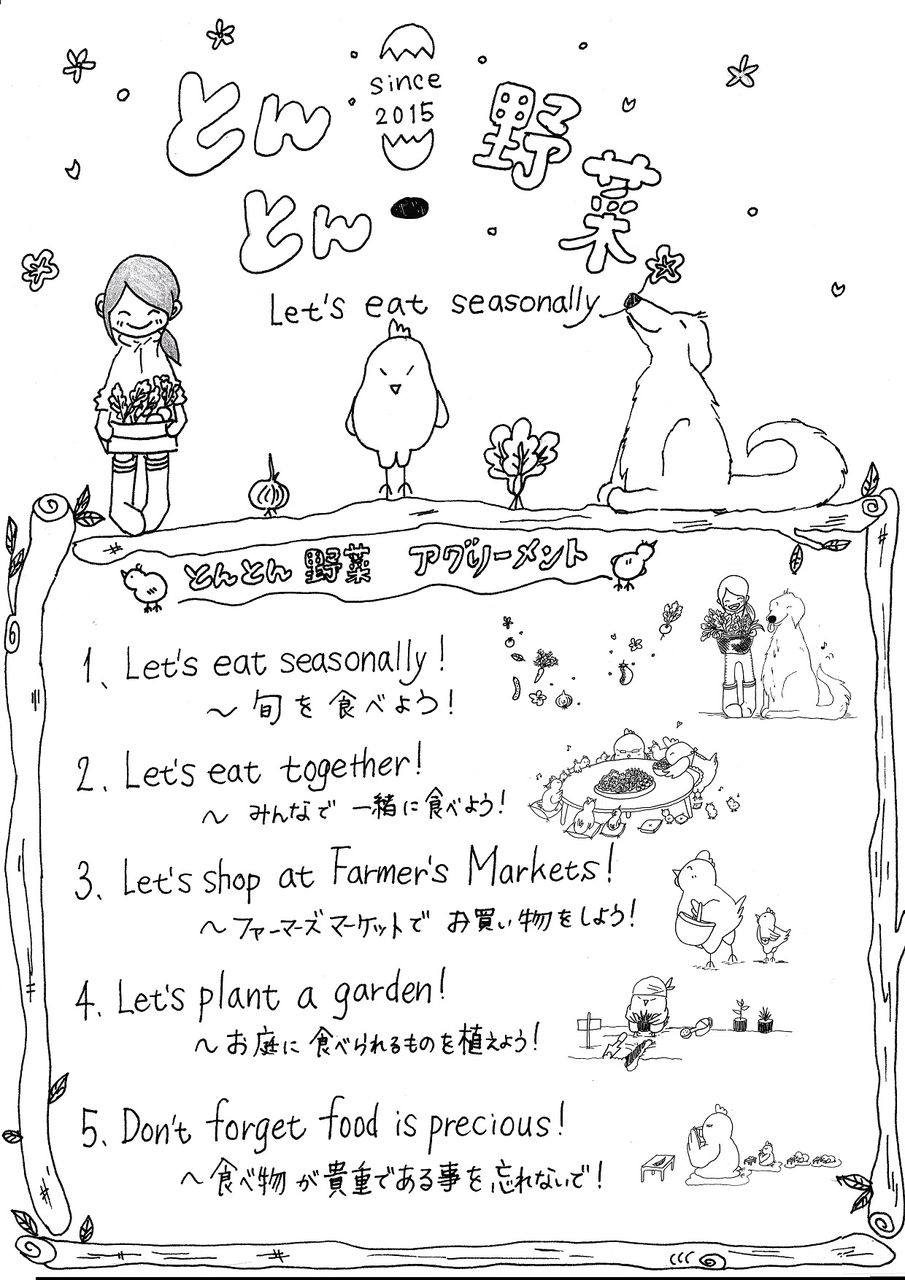 とん
since
2015
野菜
とん
Let's eat seasonally
とんとん 野菜 アグリーメント
1、Let's eat seasonally!
～ 旬を食べよう!
2、Let's eat together!
～ みんなで 一緒に食べよう!
3、Let's shop at Farmer's Markets!
～ファーマーズマーケットで お買い物をしよう!
4、Let's plant a garden!
～お庭に 食べられるものを植えよう!
5、Don't forget food is precious!
～食べ物が貴重である事を忘れないで!